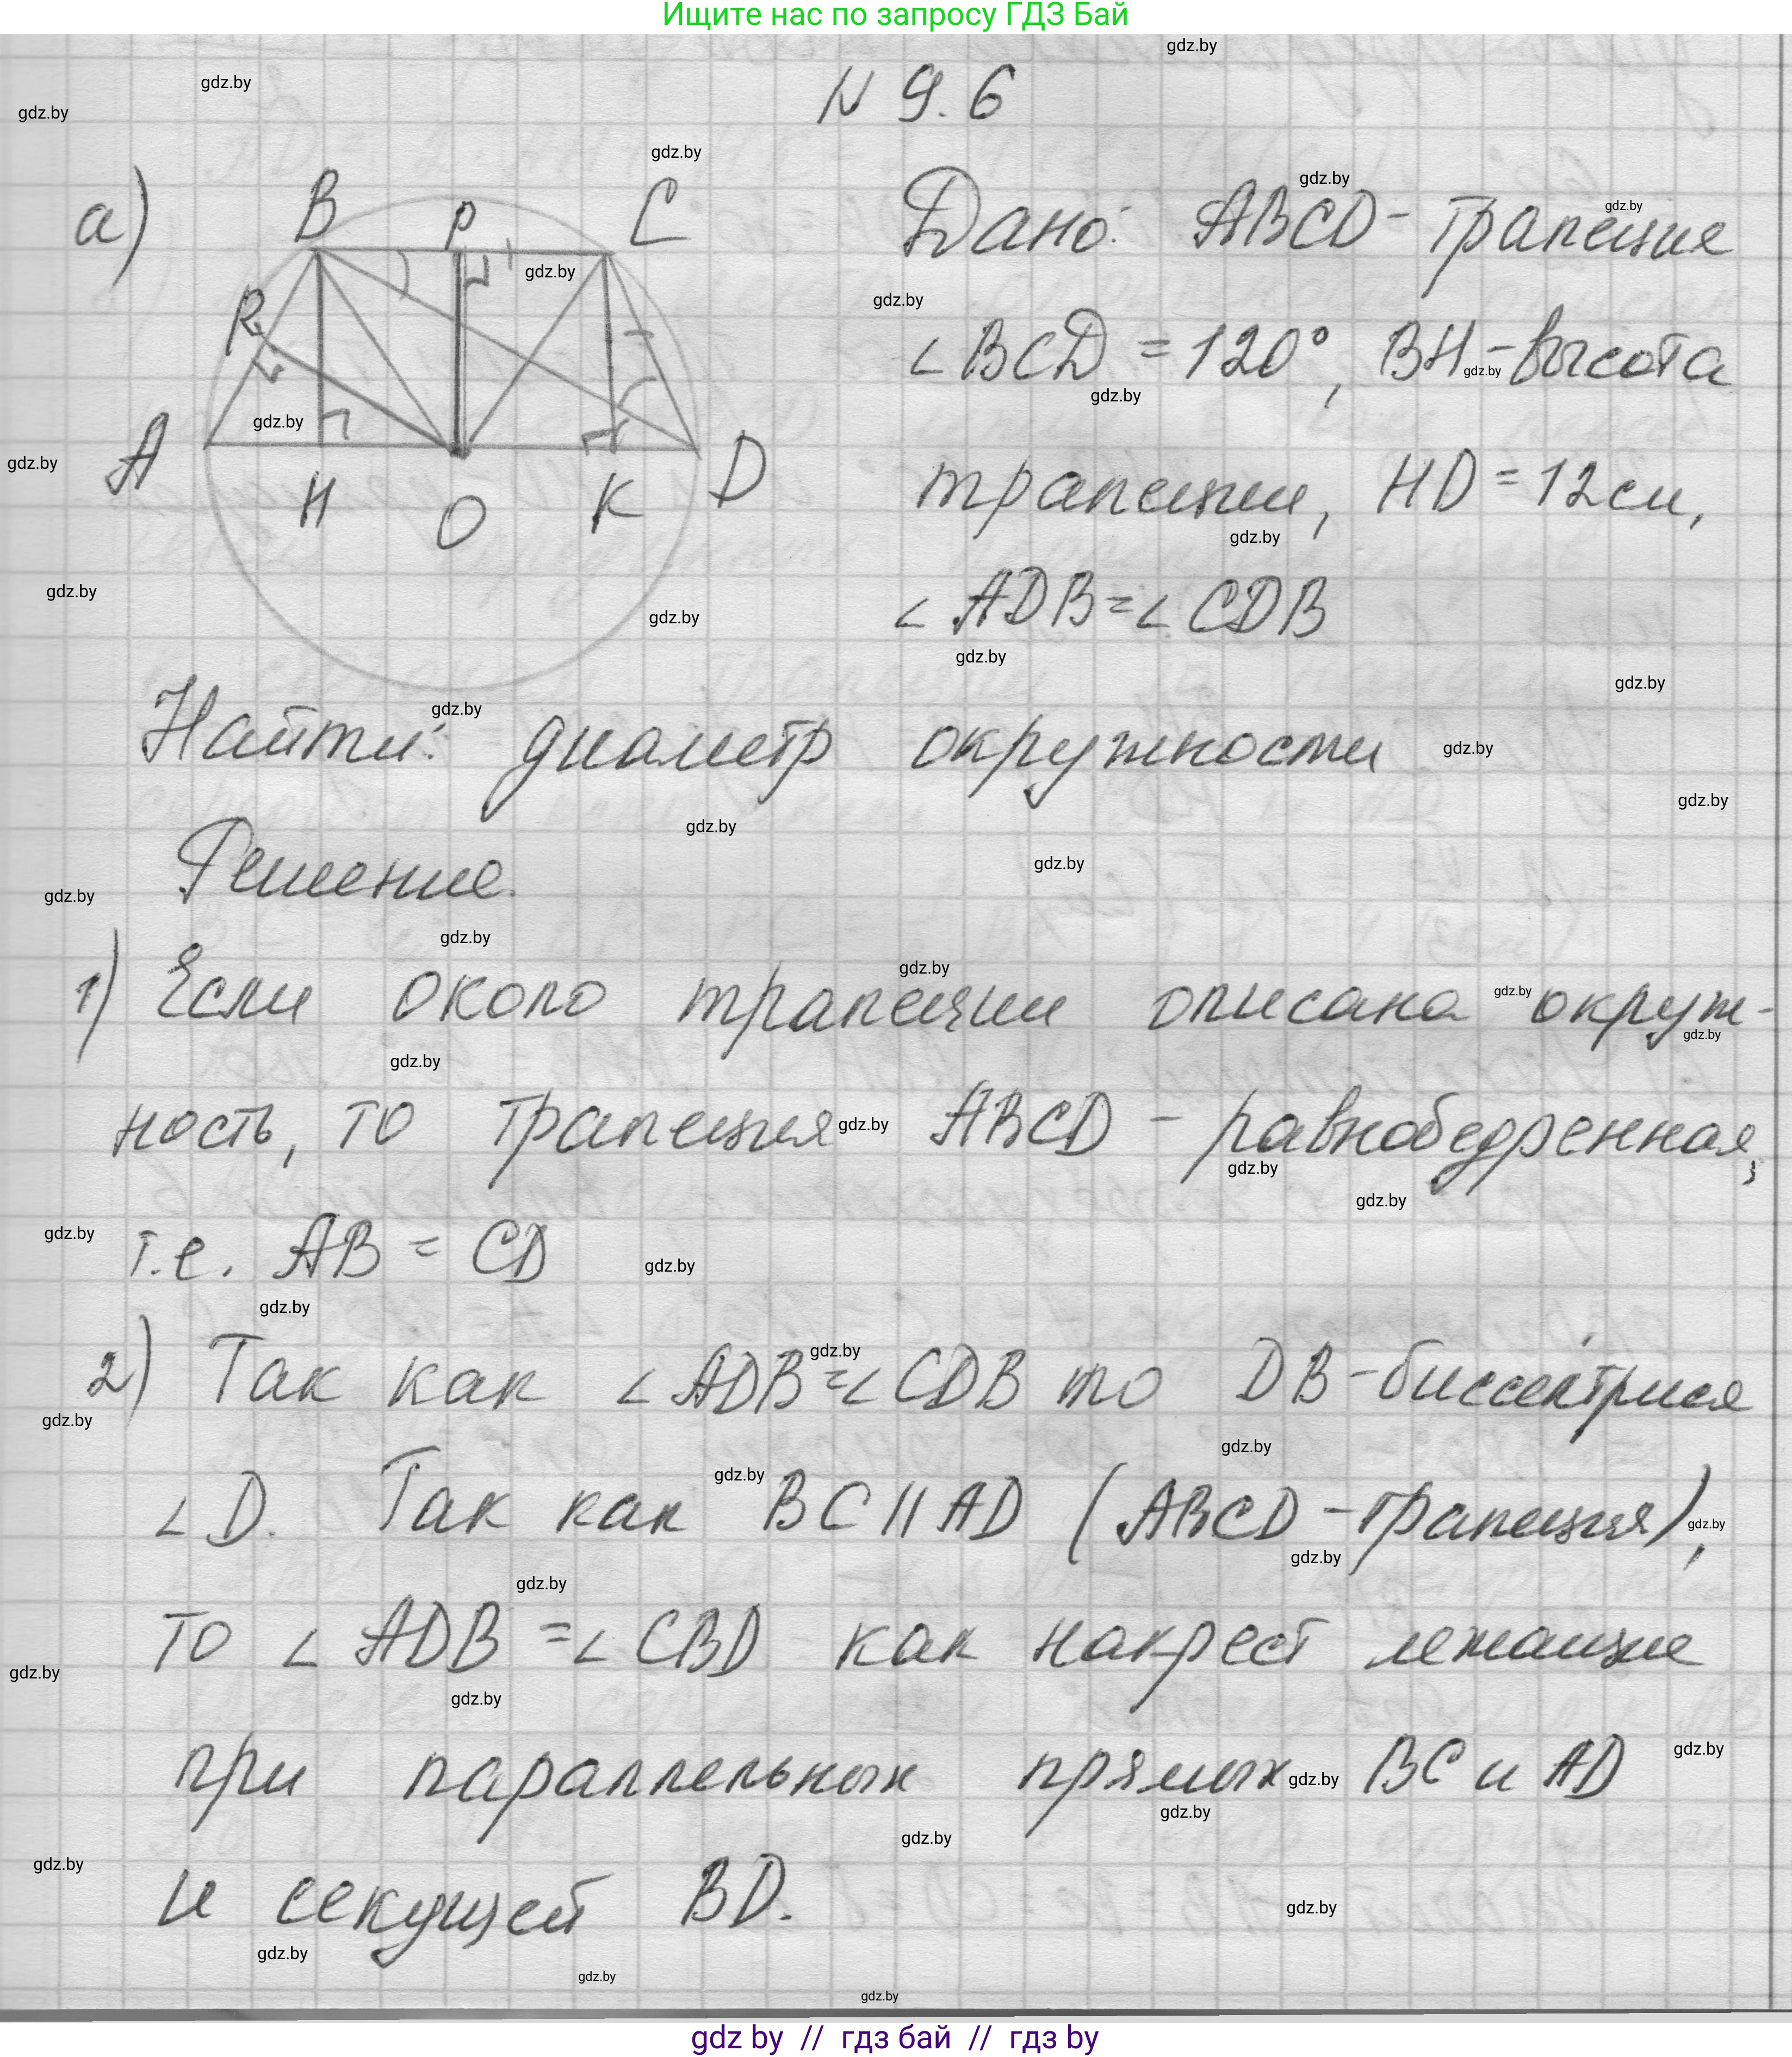 Ищите нас по запросу ГДЗ Бай
gdz.by
N 9.6
а)
B P C
R
A H O K D
Дано: ABCD - трапеция
∠BCD = 120°, BH - высота
трапеции, HD = 12 см,
∠ADB = ∠CDB
Найти: диаметр окружности
Решение.
1) Если около трапеции описана окруж-
ность, то трапеция ABCD - равнобедренная,
т.е. AB = CD
2) Так как ∠ADB = ∠CDB то DB - биссектриса
∠D. Так как BC || AD (ABCD - трапеция),
то ∠ADB = ∠CBD как накрест лежащие
при параллельных прямых BC и AD
и секущей BD.
gdz by // гдз бай // гдз by